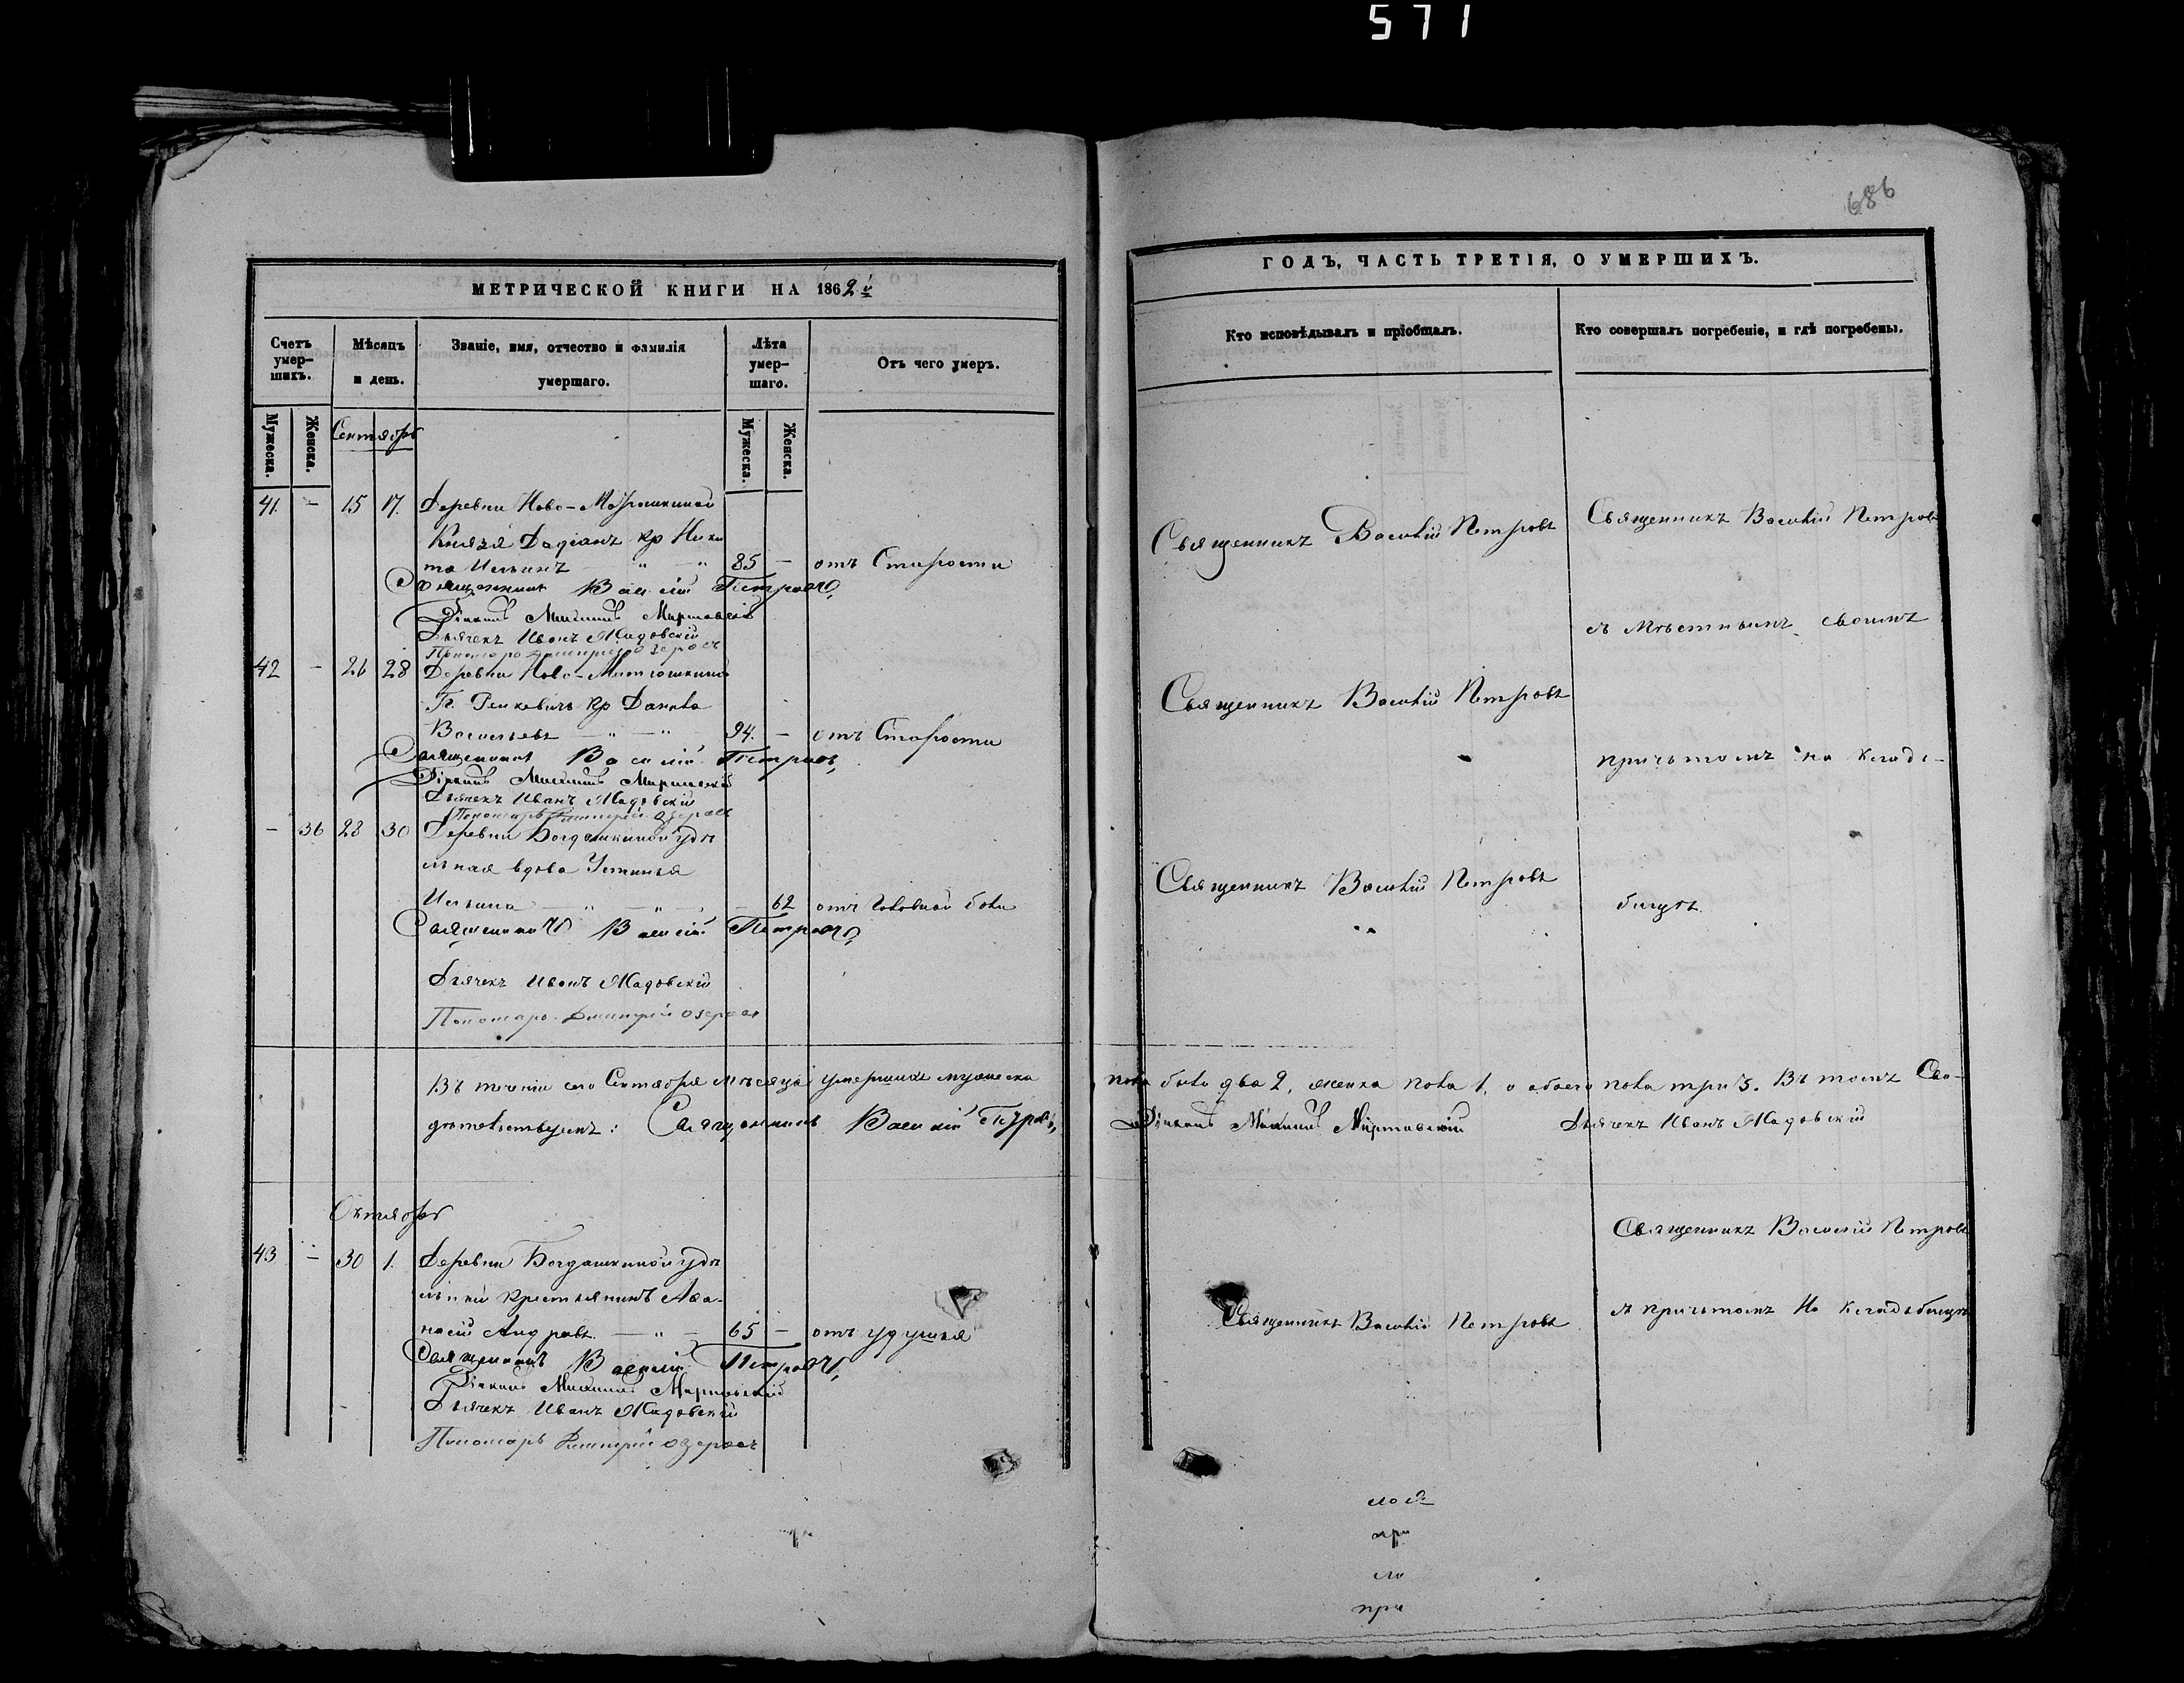 571
686
МЕТРИЧЕСКОЙ КНИГИ НА 1862й
Счетъ умер-
шихъ.
Мѣсяцъ
и день.
Званіе, имя, отчество и фамилія
умершаго.
Лѣта
умер-
шаго.
Отъ чего умеръ.
Мужеска.
Женска.
Мужеска.
Женска.
Сентябрь
41. - 15 17. Деревни Ново-
Князя Дадіанъ кр Ники
та Ильинъ — " — " 85 — отъ Старости
Священникъ Василій Петровъ,
Діаконъ Михаилъ
Дьячекъ Иванъ Жадовскій
Пономарь Димитрій Озеровъ
42 - 26 28 Деревни Ново-Матюшкиной
Гг. кр Данила
Васильевъ — " — " 94. — отъ Старости
Священникъ Василій Петровъ,
Діаконъ Михаилъ
Дьячекъ Иванъ Жадовскій
Пономарь Димитрій Озеровъ
- 36 28 30 Деревни Богдашкиной удѣ
льная вдова Устинья
Ильина — " — " — 62 отъ головной боли
Священникъ Василій Петровъ,
Дьячекъ Иванъ Жадовскій
Пономарь Димитрій Озеровъ
Въ теченіи сего Сентября мѣсяца умершихъ мужеска
дѣтельствуемъ: Священникъ Василій Петровъ,
Октябрь
43 - 30 1. Деревни Богдашкиной удѣ
льный крестьянинъ Афа-
насій Андреевъ. — " — 65 — отъ удушья
Священникъ Василій Петровъ,
Діаконъ Михаилъ
Дьячекъ Иванъ Жадовскій
Пономарь Димитрій Озеровъ
ГОДЪ, ЧАСТЬ ТРЕТІЯ, О УМЕРШИХЪ.
Кто исповѣдывалъ и пріобщалъ.
Кто совершалъ погребеніе, и гдѣ погребены.
Священникъ Василій Петровъ
Священникъ Василій Петровъ
съ мѣстнымъ своимъ
Священникъ Василій Петровъ
причтомъ на кладъ-
Священникъ Василій Петровъ
бищѣ.
пола было два 2, женска пола 1, а обоего пола три 3. Въ томъ Сви-
Діаконъ Михаилъ
Дьячекъ Иванъ Жадовскій
Священникъ Василій Петровъ
Священникъ Василій Петровъ
съ причтомъ На кладъбищѣ